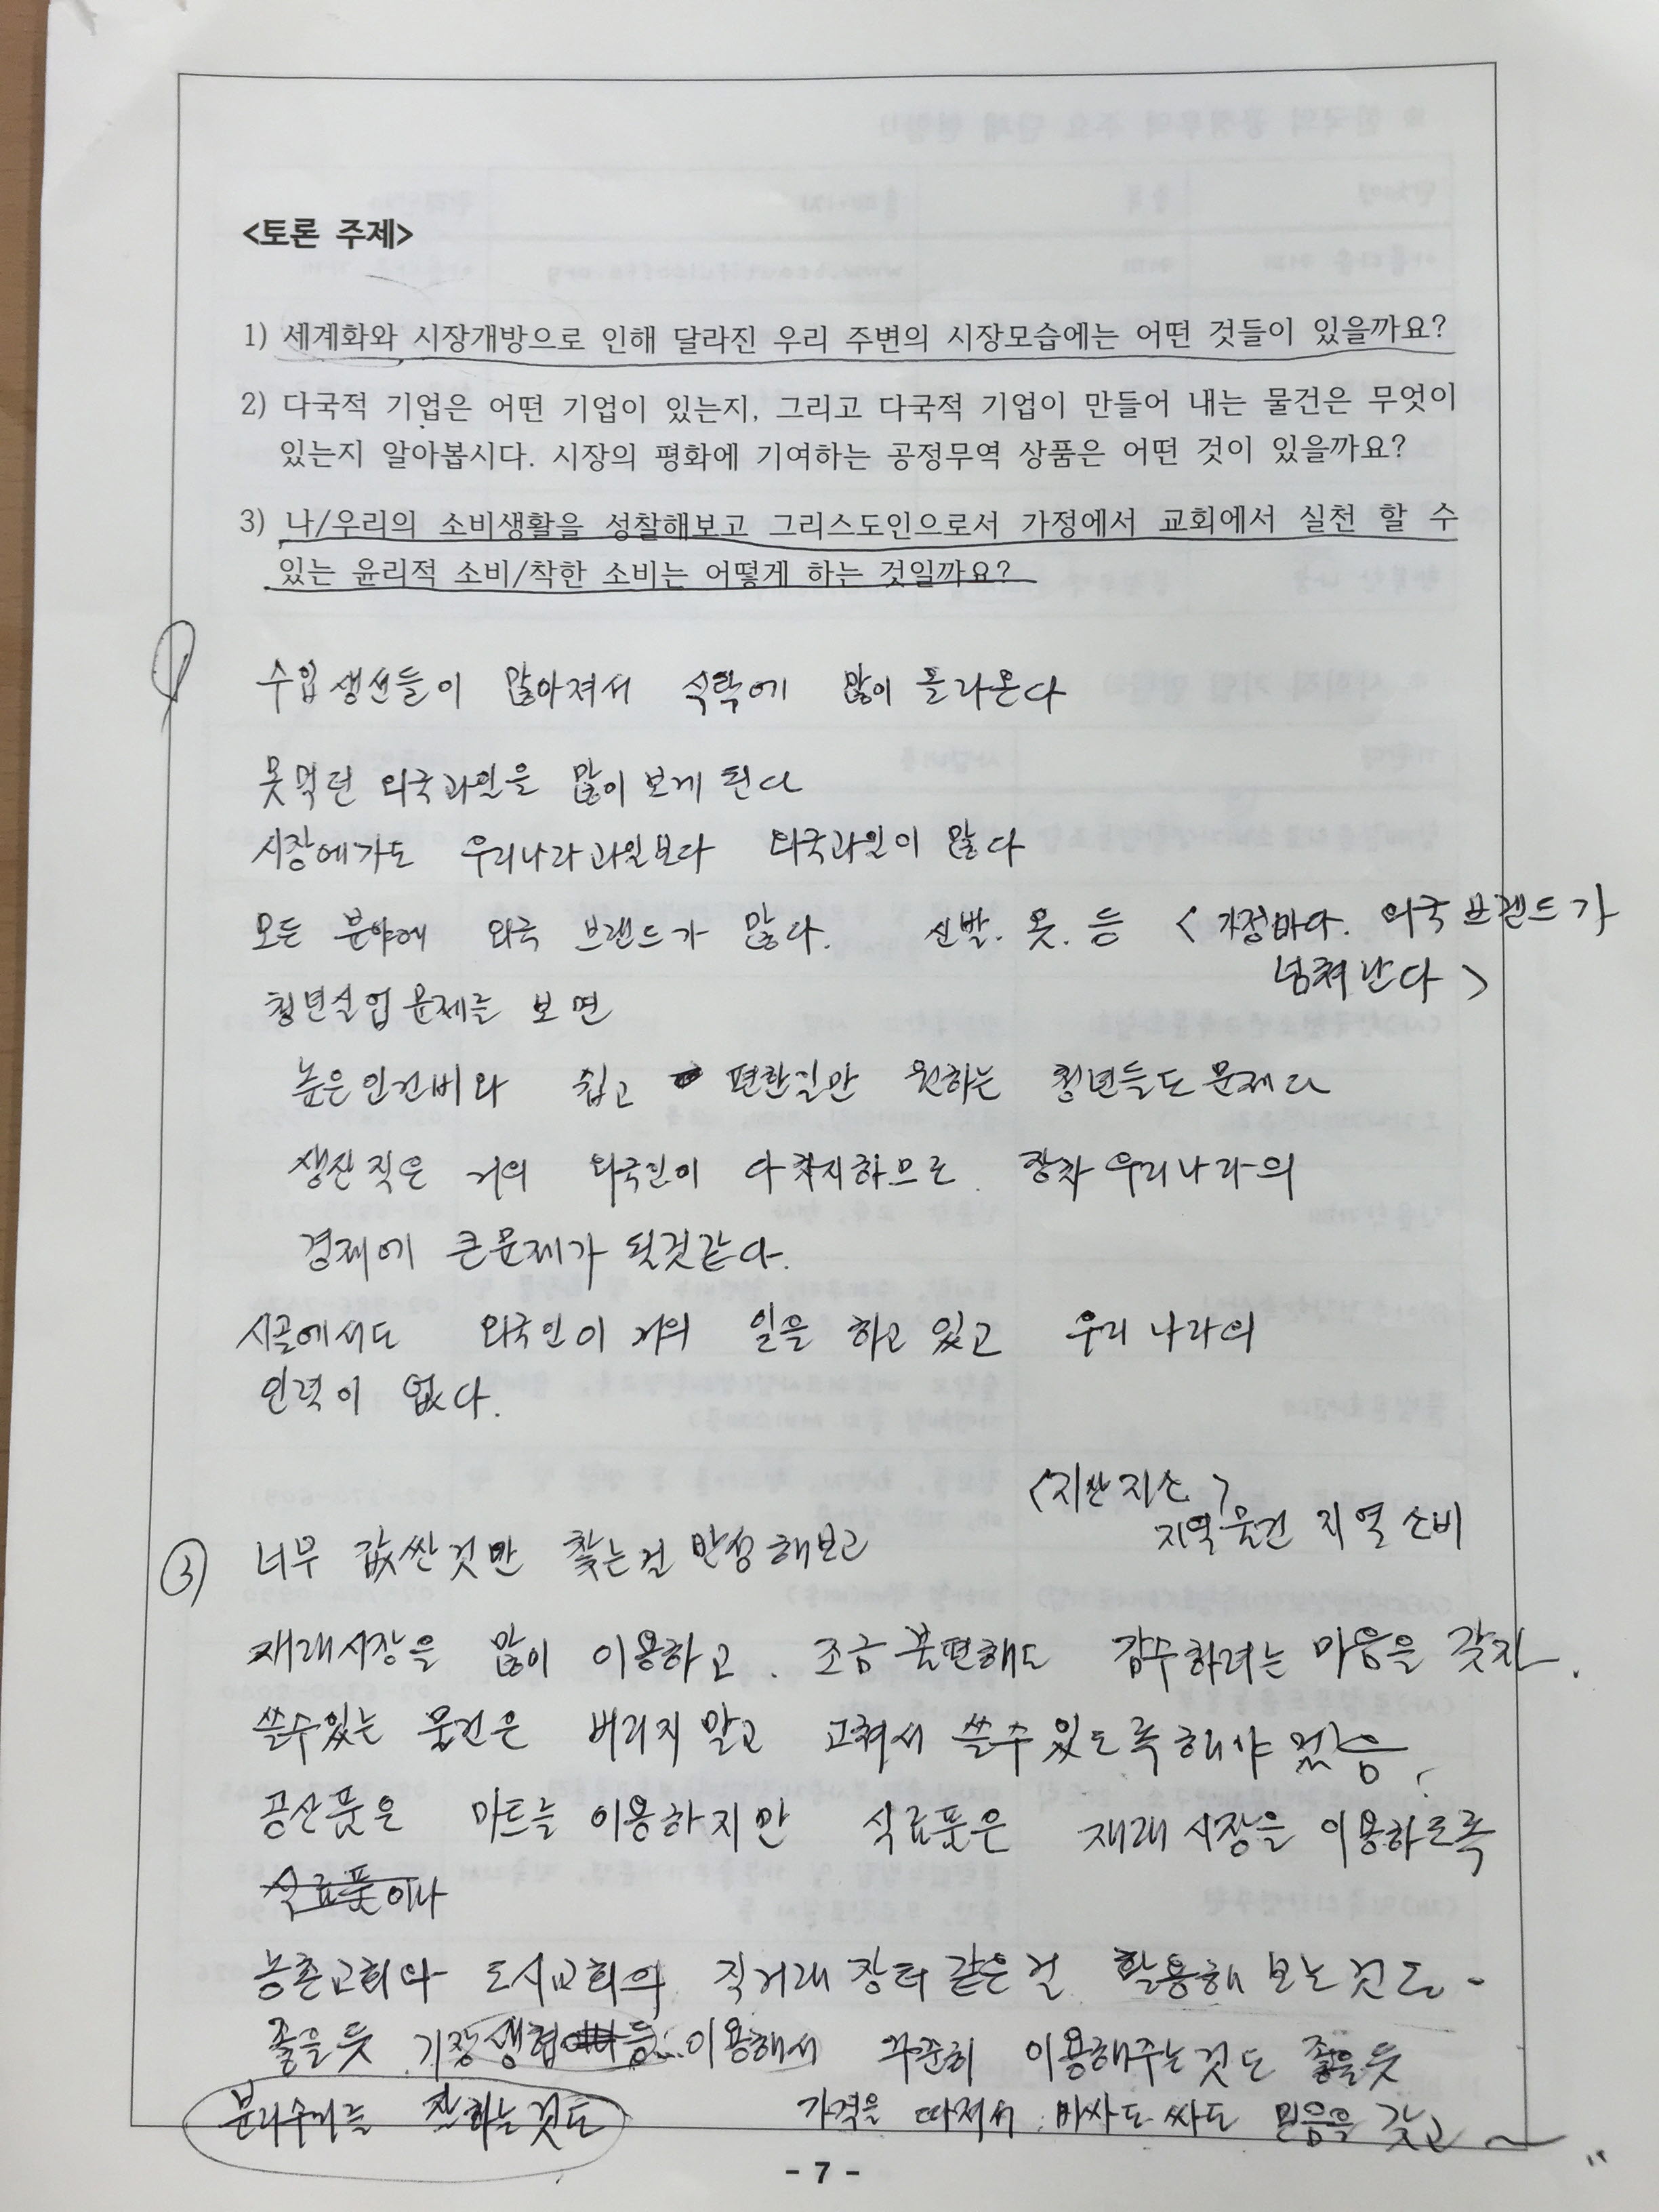 <토론 주제>
1) 세계화와 시장개방으로 인해 달라진 우리 주변의 시장모습에는 어떤 것들이 있을까요?
2) 다국적 기업은 어떤 기업이 있는지, 그리고 다국적 기업이 만들어 내는 물건은 무엇이
있는지 알아봅시다. 시장의 평화에 기여하는 공정무역 상품은 어떤 것이 있을까요?
3) 나/우리의 소비생활을 성찰해보고 그리스도인으로서 가정에서 교회에서 실천 할 수
있는 윤리적 소비/착한 소비는 어떻게 하는 것일까요?
수입 생선들이 많아져서 식탁에 많이 올라온다
못먹던 외국과일을 많이 보게 된다
시장에가도 우리나라과일보다 외국과일이 많다
모든 분야에 외국 브랜드가 많다. 신발. 옷. 등 <가정마다. 외국 브랜드가
넘쳐 난다>
청년실업문제를 보면
높은인건비와 쉽고 편한길만 원하는 청년들도 문제다
생산직은 거의 외국인이 다 차지하므로 장차 우리나라의
경제에 큰문제가 될것같다.
시골에서도 외국인이 거의 일을 하고 있고 우리 나라의
인력이 없다.
<지산지소>
지역물건 지역소비
③ 너무 값싼것만 찾는걸 반성해보고
재래시장을 많이 이용하고. 조금 불편해도 감수하려는 마음을 갖자.
쓸수있는 물건은 버리지 말고 고쳐서 쓸수 있도록해야 겠음.
공산품은 마트를 이용하지만 식료품은 재래 시장을 이용하도록
식료품이나
농촌교회와 도시교회의 직거래 장터 같은걸 활용해 보는것도.
좋을듯 기장생협 등... 이용해서 꾸준히 이용해주는것도 좋을듯
분리수거를 잘하는것도 가격을 따져서 비싸도 싸도 믿음을 갖고 ~
- 7 -